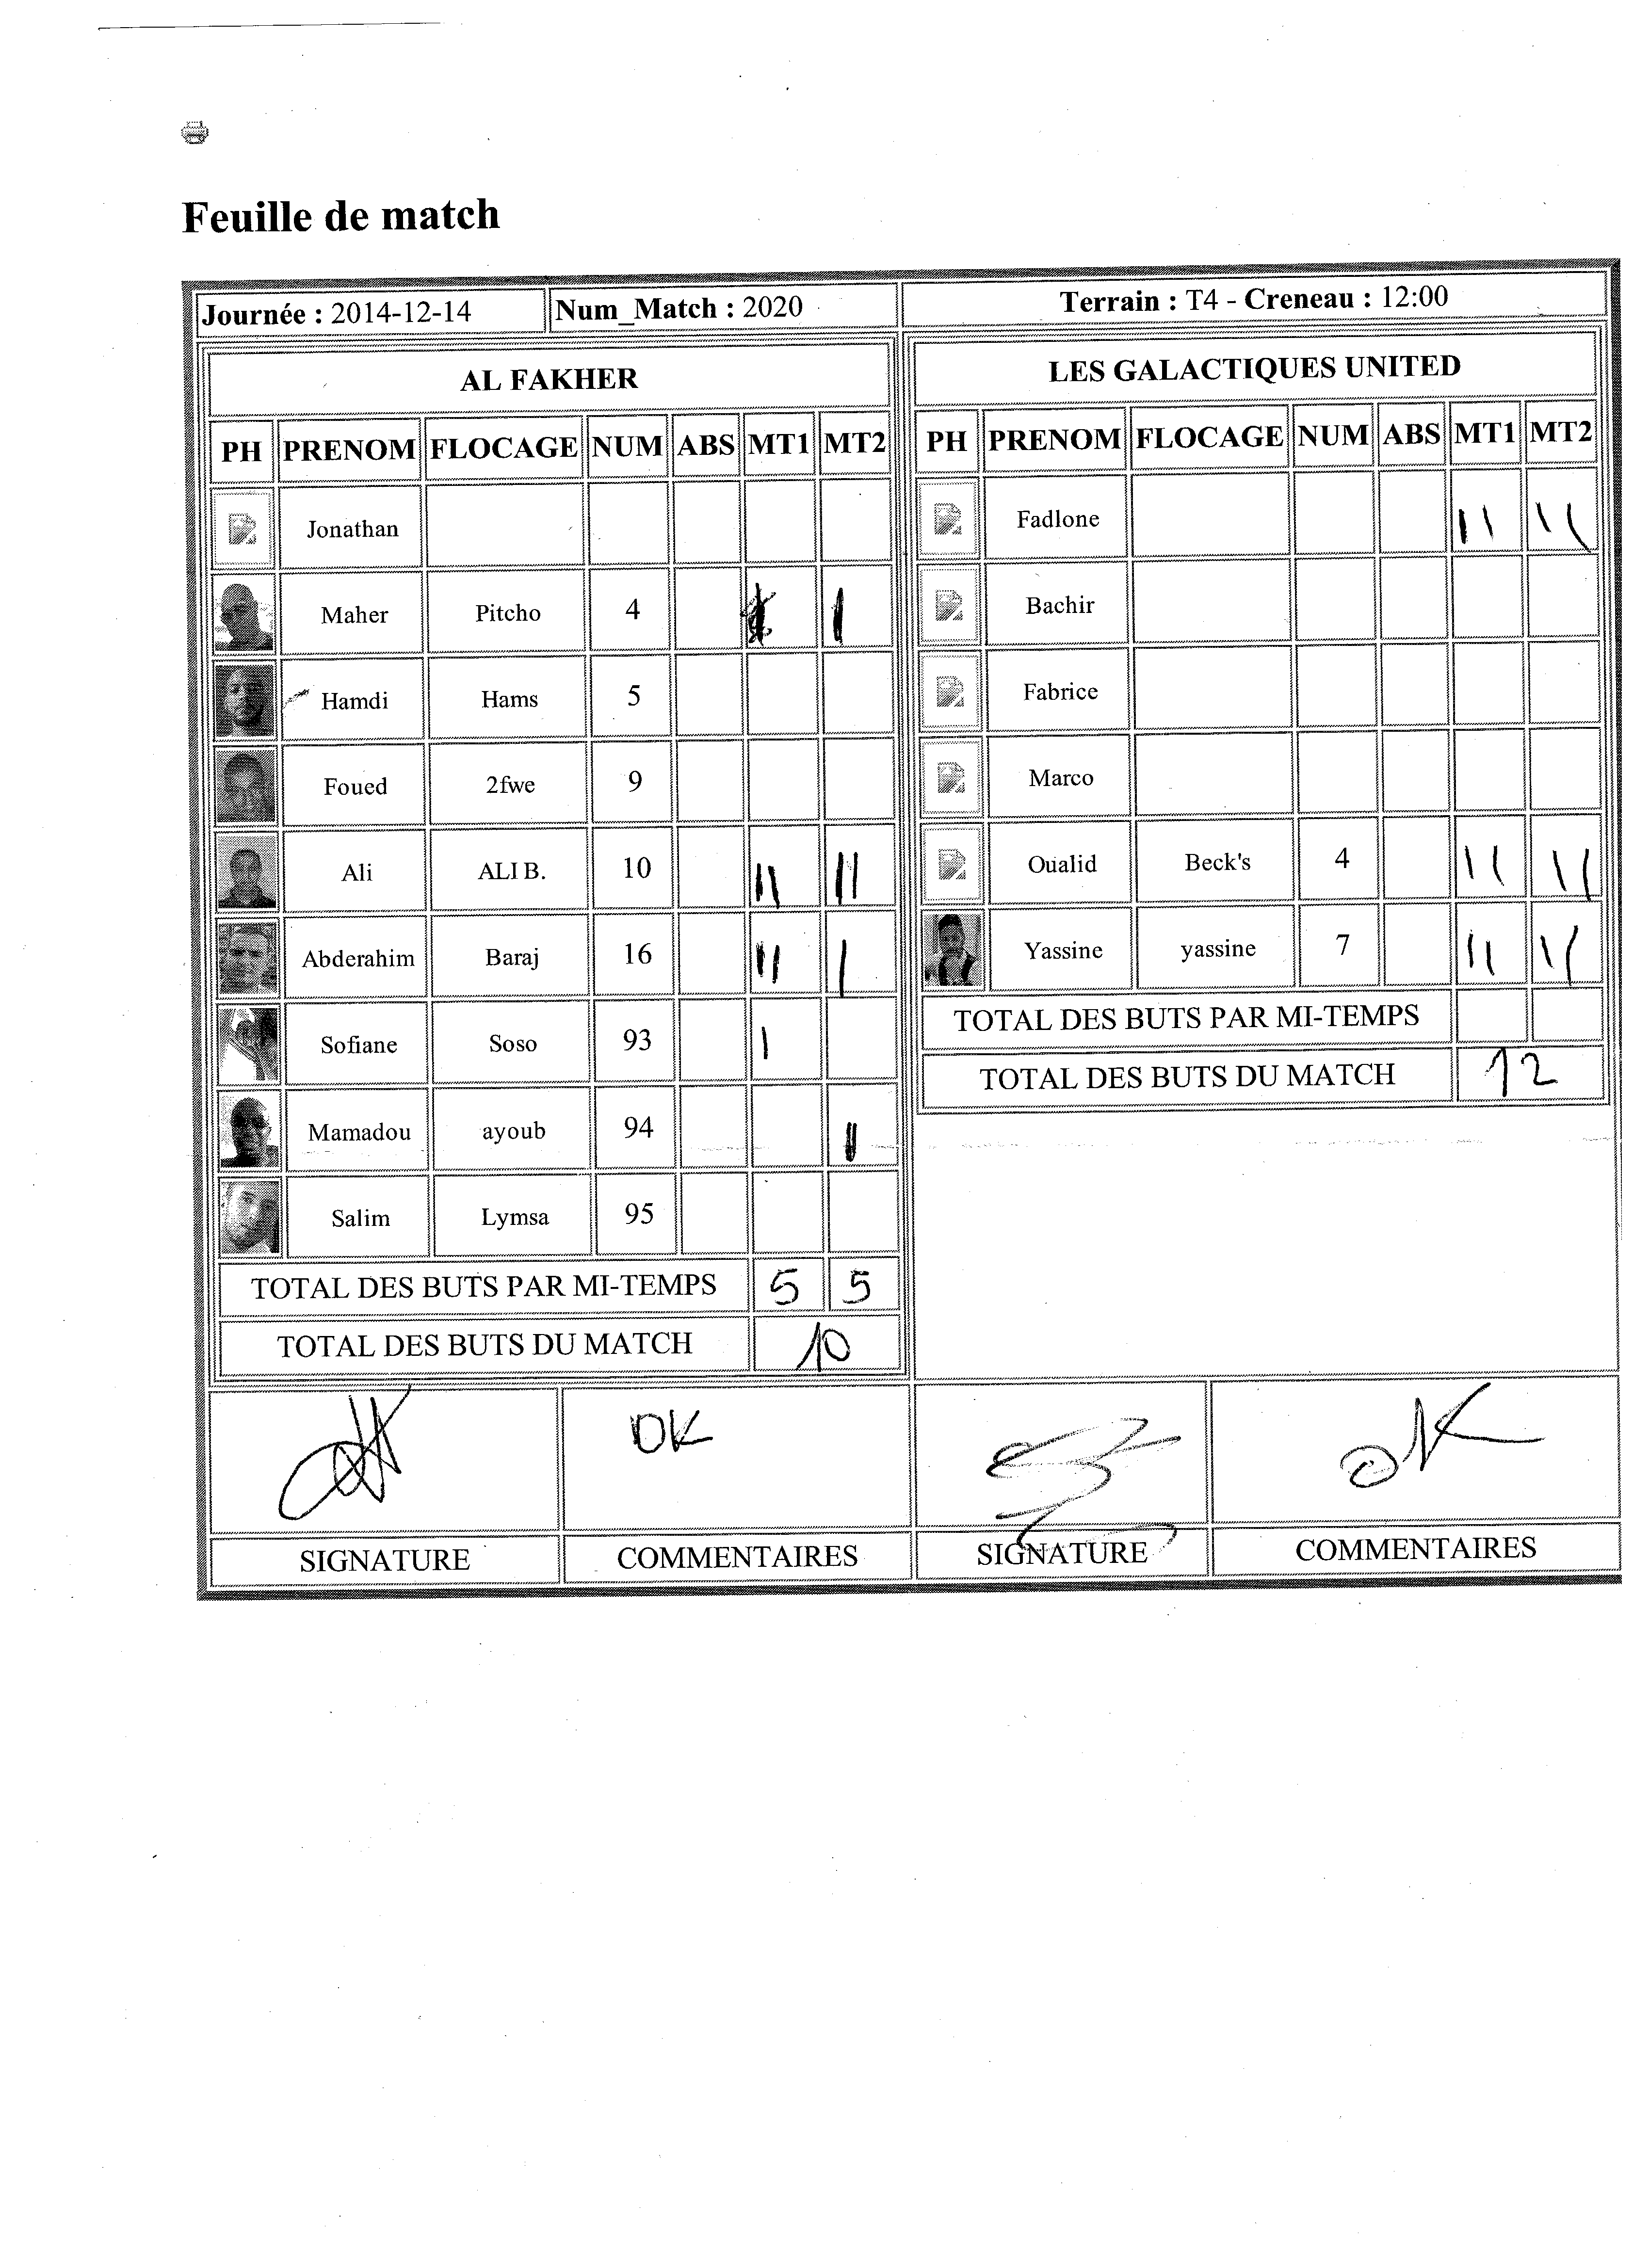 Feuille de match
Journée : 2014-12-14 Num_Match : 2020 Terrain : T4 - Creneau : 12:00
AL FAKHER
PH PRENOM FLOCAGE NUM ABS MT1 MT2
Jonathan
Maher Pitcho 4 I
Hamdi Hams 5
Foued 2fwe 9
Ali ALI B. 10 II II
Abderahim Baraj 16 II I
Sofiane Soso 93 I
Mamadou ayoub 94 II
Salim Lymsa 95
TOTAL DES BUTS PAR MI-TEMPS 5 5
TOTAL DES BUTS DU MATCH 10
LES GALACTIQUES UNITED
PH PRENOM FLOCAGE NUM ABS MT1 MT2
Fadlone II II
Bachir
Fabrice
Marco
Oualid Beck's 4 II II
Yassine yassine 7 II II
TOTAL DES BUTS PAR MI-TEMPS
TOTAL DES BUTS DU MATCH 12
OK OK
SIGNATURE COMMENTAIRES SIGNATURE COMMENTAIRES